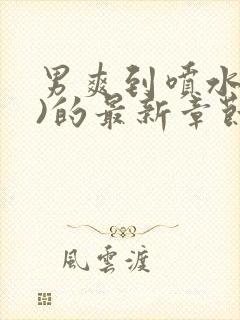 男爽到喷水
)的最新章節
風雲渡